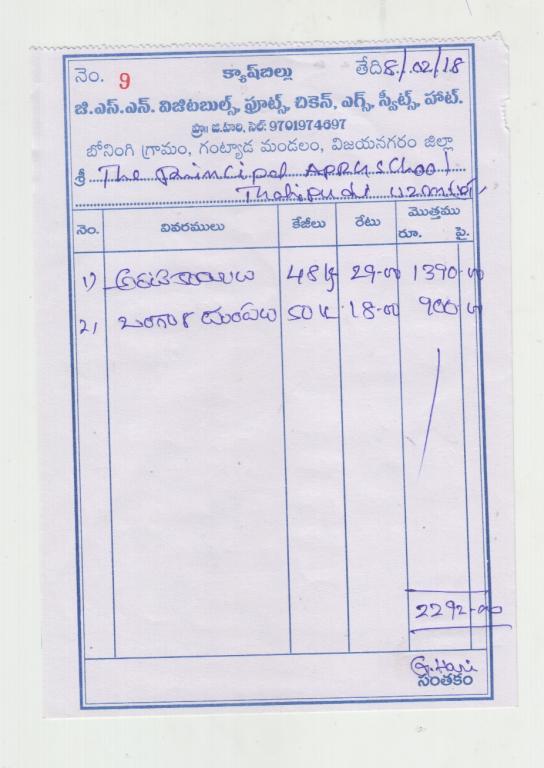 నెం. 9 క్యాష్‌బిల్లు తేది 8/02/18
జి.ఎస్.ఎన్. విజిటబుల్స్, ఫ్రూట్స్, చికెన్, ఎగ్స్, స్వీట్స్, హాట్.
ప్రొ॥ జి.హరి, సెల్: 9701974697
బోనింగి గ్రామం, గంట్యాడ మండలం, విజయనగరం జిల్లా
శ్రీ The Principal APRJ School
Thatipudi
నెం. వివరములు కేజీలు రేటు మొత్తము
రూ. పై.
1) అరటికాయలు 48 k 29-00 1390-00
2) బంగాళ దుంపలు 50 k 18-00 900-00
2292-00
G. Hari
సంతకం